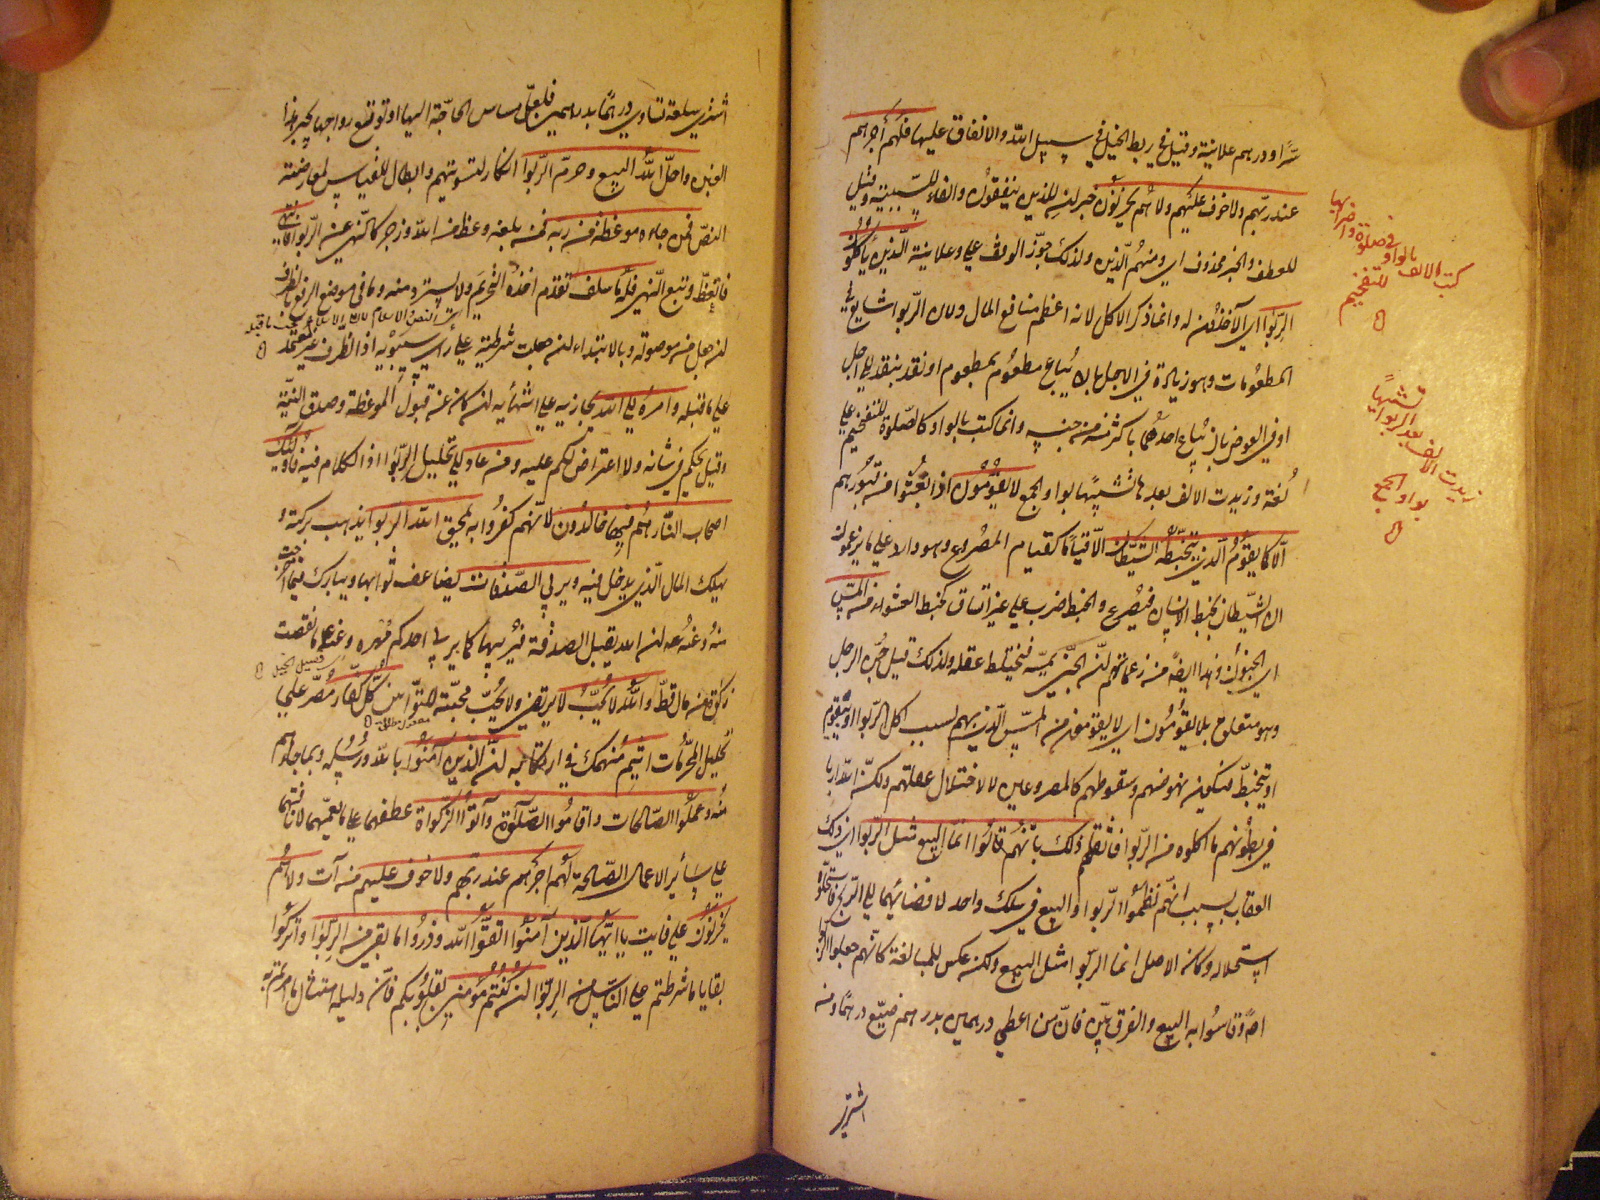 سرّا ودرهم علانية وقيل في ربط الخيل في سبيل الله والانفاق عليها فلهم أجرهم
عند ربهم ولا خوف عليهم ولا هم يحزنون خبر الذين ينفقون والفاء للسببية وقيل
للعطف والخبر محذوف اي ومنهم الذين ولذلك جوّز الوقف على وعلانية الذين يأكلون
الربوا اي الآخذون له وانما ذكر الاكل لانه اعظم منافع المال ولان الربوا شايع في
المطعومات وهو زيادة في الاجل بان يباع مطعوم بمطعوم او نقد بنقد الى اجل
او في العوض بان يباع احدهما باكثر منه من جنسه وانما كتب بالواو كالصلوة للتفخيم على
لغة وزيدت الالف بعدها تشبيها بواو الجمع لا يقومون اذا بعثوا من قبورهم
الّا كما يقوم الذي يتخبطه الشيطان الّا قياما كقيام المصروع وهو وارد على ما يزعمون
ان الشيطان يخبط الانسان فيصرع والخبط ضرب على غير اتساق كخبط العشواء من المسّ
اي الجنون وهذا ايضا من زعماتهم انّ الجنّي يمسّه فيختلط عقله ولذلك قيل جُنّ الرجل
وهو متعلق بلا يقومون اي لا يقومون من المسّ الذي بهم بسبب اكل الربوا او بيقوم
او يتخبّط فيكون نهوضهم وسقوطهم كالمصروعين لا لاختلال عقلهم ولكنّ الله اربا
في بطونهم ما اكلوه من الربوا فاثقلهم ذلك بانّهم قالوا انما البيع مثل الربوا اي ذلك
العقاب بسبب انّهم نظموا الربوا والبيع في سلك واحد لافضائهما الى الربح فاستحلوه
استحلاله وكان الاصل انما الربوا مثل البيع ولكن عكس للمبالغة كانّهم جعلوا الربوا
اصلا وقاسوا به البيع والفرق بيّن فانّ من اعطى درهمين بدرهم ضيّع درهما ومن
اشترى
كتب الالف بالواو في صلوة واضرابها
للتفخيم
زيدت الالف بعد الربوا تشبيها
بواو الجمع
اشترى سلعة تساوي درهما بدرهمين فلعلّ مساس الحاجة اليها او توقع رواجها يجبر هذا
الغبن واحلّ الله البيع وحرم الربوا انكار لتسويتهم وابطال للقياس لمعارضته
النصّ فمن جاءه موعظة من ربه فمن بلغه وعظ من الله وزجر كالنهي عن الربوا فانتهى
فاتعظ وتبع النهي فله ما سلف تقدم اخذه التحريم ولا يسترد منه وما في موضع الرفع بالظرف
ان جعل من موصولة وبالابتداء ان جعلت شرطية على رأي سيبويه اذ الظرف غير معتمد
على ما قبله وامره الى الله يجازيه على انتهائه ان كان عن قبول الموعظة وصدق النيّة
وقيل يحكم في شانه ولا اعتراض لكم عليه ومن عاد الى تحليل الربوا اذ الكلام فيه فاولئك
اصحاب النار هم فيها خالدون لانّهم كفروا به يمحق الله الربوا يذهب بركته و
يهلك المال الذي يدخل فيه ويربي الصدقات يضاعف ثوابها ويبارك فيما اخرجت
منه وعنه عم ان الله يقبل الصدقة فيربيها كما يربي احدكم مهره وعنه عم ما نقصت
زكوة من مال قطّ والله لا يحبّ لا يرتضي ولا يحبّ محبّته للتوّابين كلّ كفّار مصرّ على
تحليل المحرّمات اثيم منهمك في ارتكابه انّ الذين آمنوا بالله ورسوله وبما جاءهم
منه وعملوا الصالحات واقاموا الصلوة وآتوا الزكواة عطفهما على ما يعمّهما لانافتهما
على سائر الاعمال الصالحة لهم اجرهم عند ربهم ولا خوف عليهم من آت ولا هم
يحزنون على فايت يا ايّها الذين آمنوا اتقوا الله وذروا ما بقي من الربوا واتركوا
بقايا ما شرطتم على الناس من الربوا ان كنتم مؤمنين بقلوبكم فانّ دليله امتثال ما امرتم به